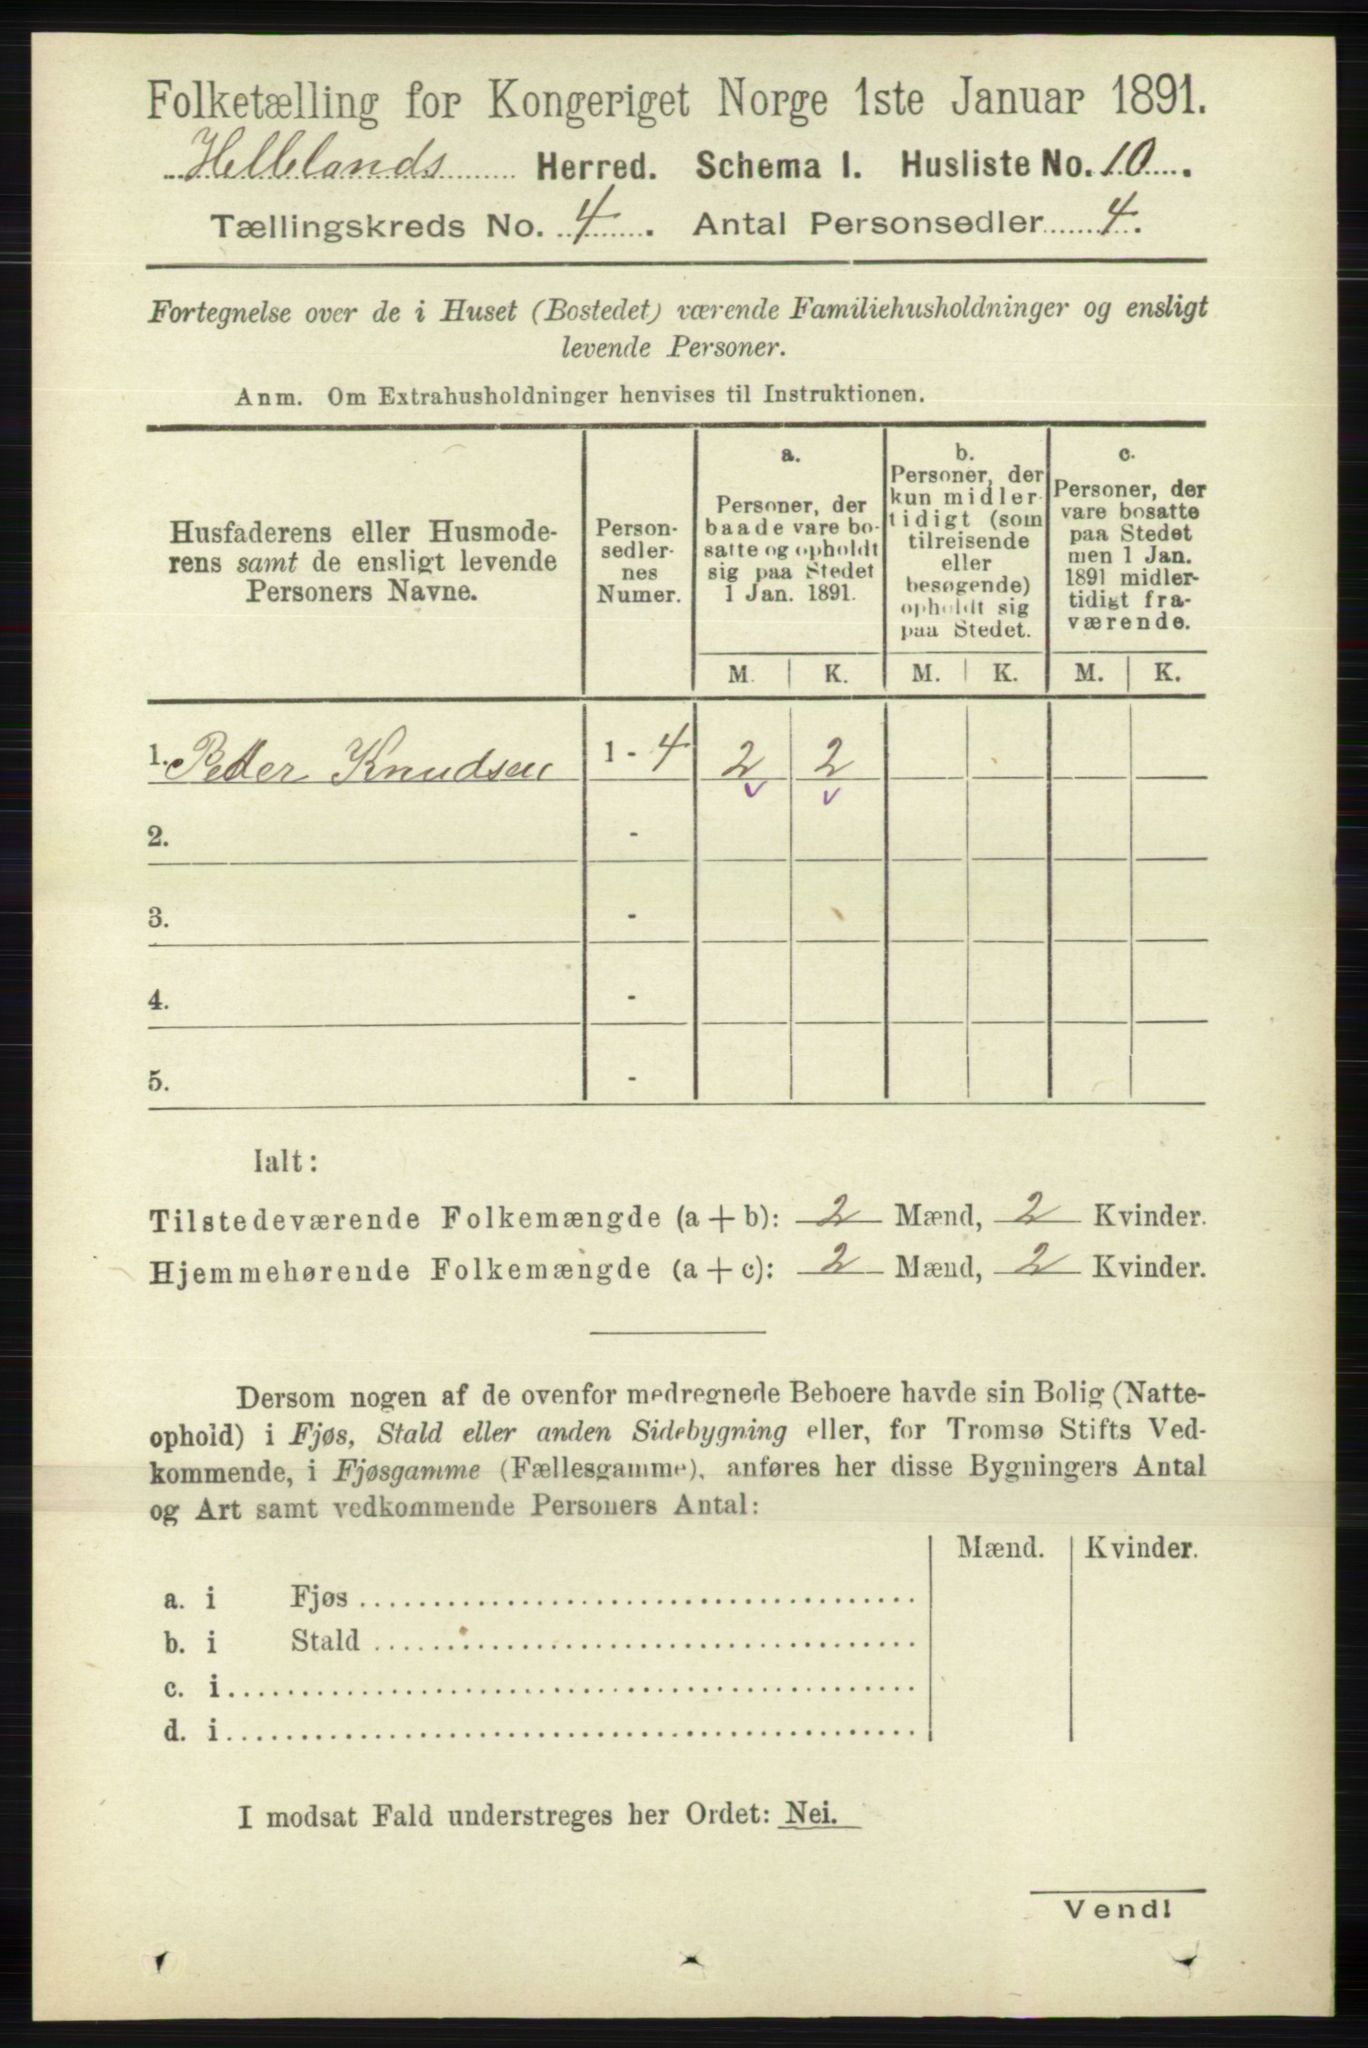 Folketælling for Kongeriget Norge 1ste Januar 1891.
Hellelands Herred. Schema I. Husliste No. 10.
Tællingskreds No. 4. Antal Personsedler 4.
Fortegnelse over de i Huset (Bostedet) værende Familiehusholdninger og ensligt
levende Personer.
Anm. Om Extrahusholdninger henvises til Instruktionen.
Husfaderens eller Husmode-
rens samt de ensligt levende
Personers Navne.
Person-
sedler-
nes
Numer.
a.
Personer, der
baade vare bo-
satte og opholdt
sig paa Stedet
1 Jan. 1891.
b.
Personer, der
kun midler-
tidigt (som
tilreisende
eller
besøgende)
opholdt sig
paa Stedet.
c.
Personer, der
vare bosatte
paa Stedet
men 1 Jan.
1891 midler-
tidigt fra-
værende.
M. K. M. K. M. K.
1. Peder Knudsen 1 - 4 2 2
2. -
3. -
4. -
5. -
Ialt:
Tilstedeværende Folkemængde (a + b): 2 Mænd, 2 Kvinder.
Hjemmehørende Folkemængde (a + c): 2 Mænd, 2 Kvinder.
Dersom nogen af de ovenfor medregnede Beboere havde sin Bolig (Natte-
ophold) i Fjøs, Stald eller anden Sidebygning eller, for Tromsø Stifts Ved-
kommende, i Fjøsgamme (Fællesgamme), anføres her disse Bygningers Antal
og Art samt vedkommende Personers Antal:
Mænd. Kvinder.
a. i Fjøs
b. i Stald
c. i
d. i
I modsat Fald understreges her Ordet: Nei.
Vendl